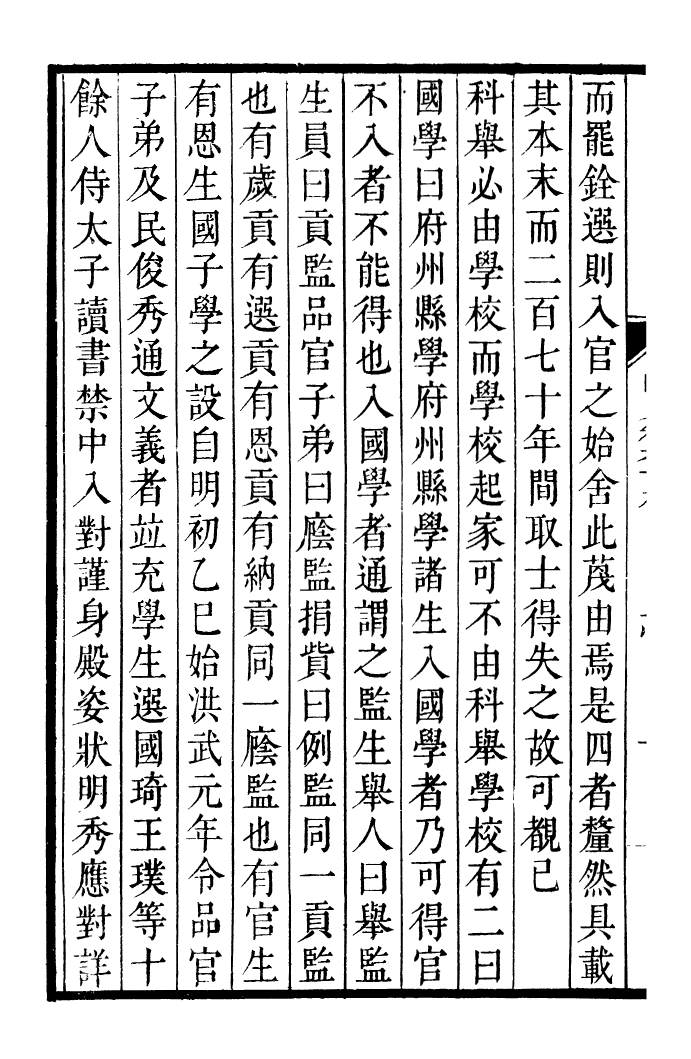 而罷銓選則入官之始舍此蔑由焉是四者釐然具載
其本末而二百七十年間取士得失之故可覩已
科舉必由學校而學校起家可不由科舉學校有二曰
國學曰府州縣學府州縣學諸生入國學者乃可得官
不入者不能得也入國學者通謂之監生舉人曰舉監
生員曰貢監品官子弟曰廕監捐貲曰例監同一貢監
也有歲貢有選貢有恩貢有納貢同一廕監也有官生
有恩生國子學之設自明初乙巳始洪武元年令品官
子弟及民俊秀通文義者竝充學生選國琦王璞等十
餘人侍太子讀書禁中入對謹身殿姿狀明秀應對詳